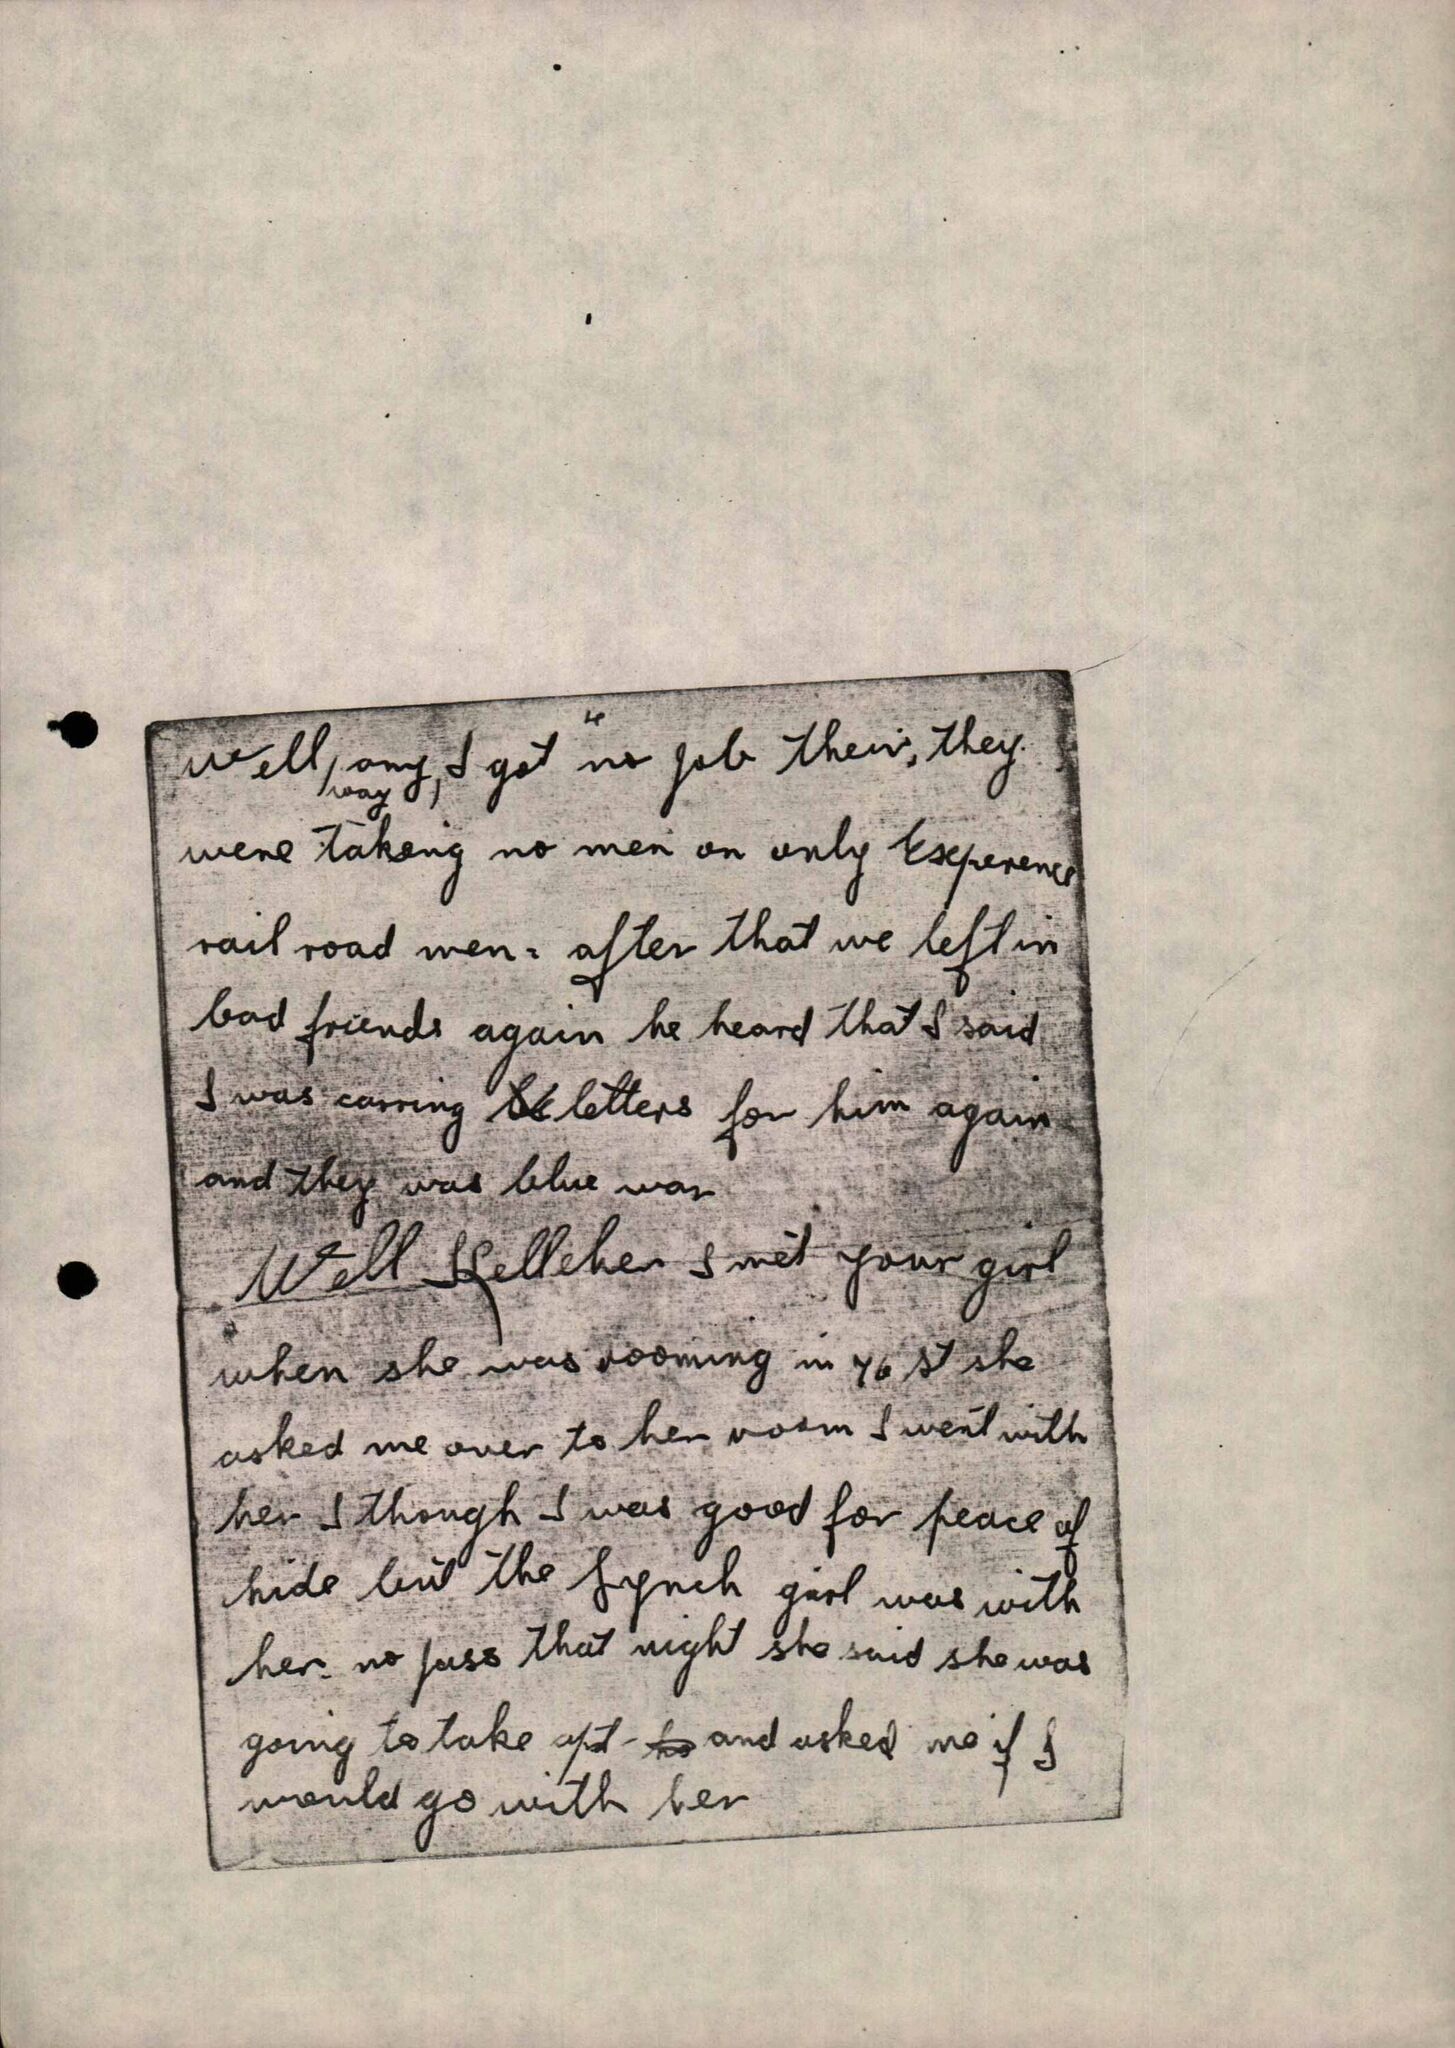 4
Well, any way, I got no job their, they
were takeing no men on only Experence
rail road men - after that we left in
bad friends again he heard that I said
I was carring letters for him again
and they was blue war
Well Kelleher I met your girl
when she was rooming in 76 st she
asked me over to her room I went with
her I though I was good for peace of
hide but the Lynch girl was with
her - no pass that night she said she was
going to take apt - and asked me if I
would go with her